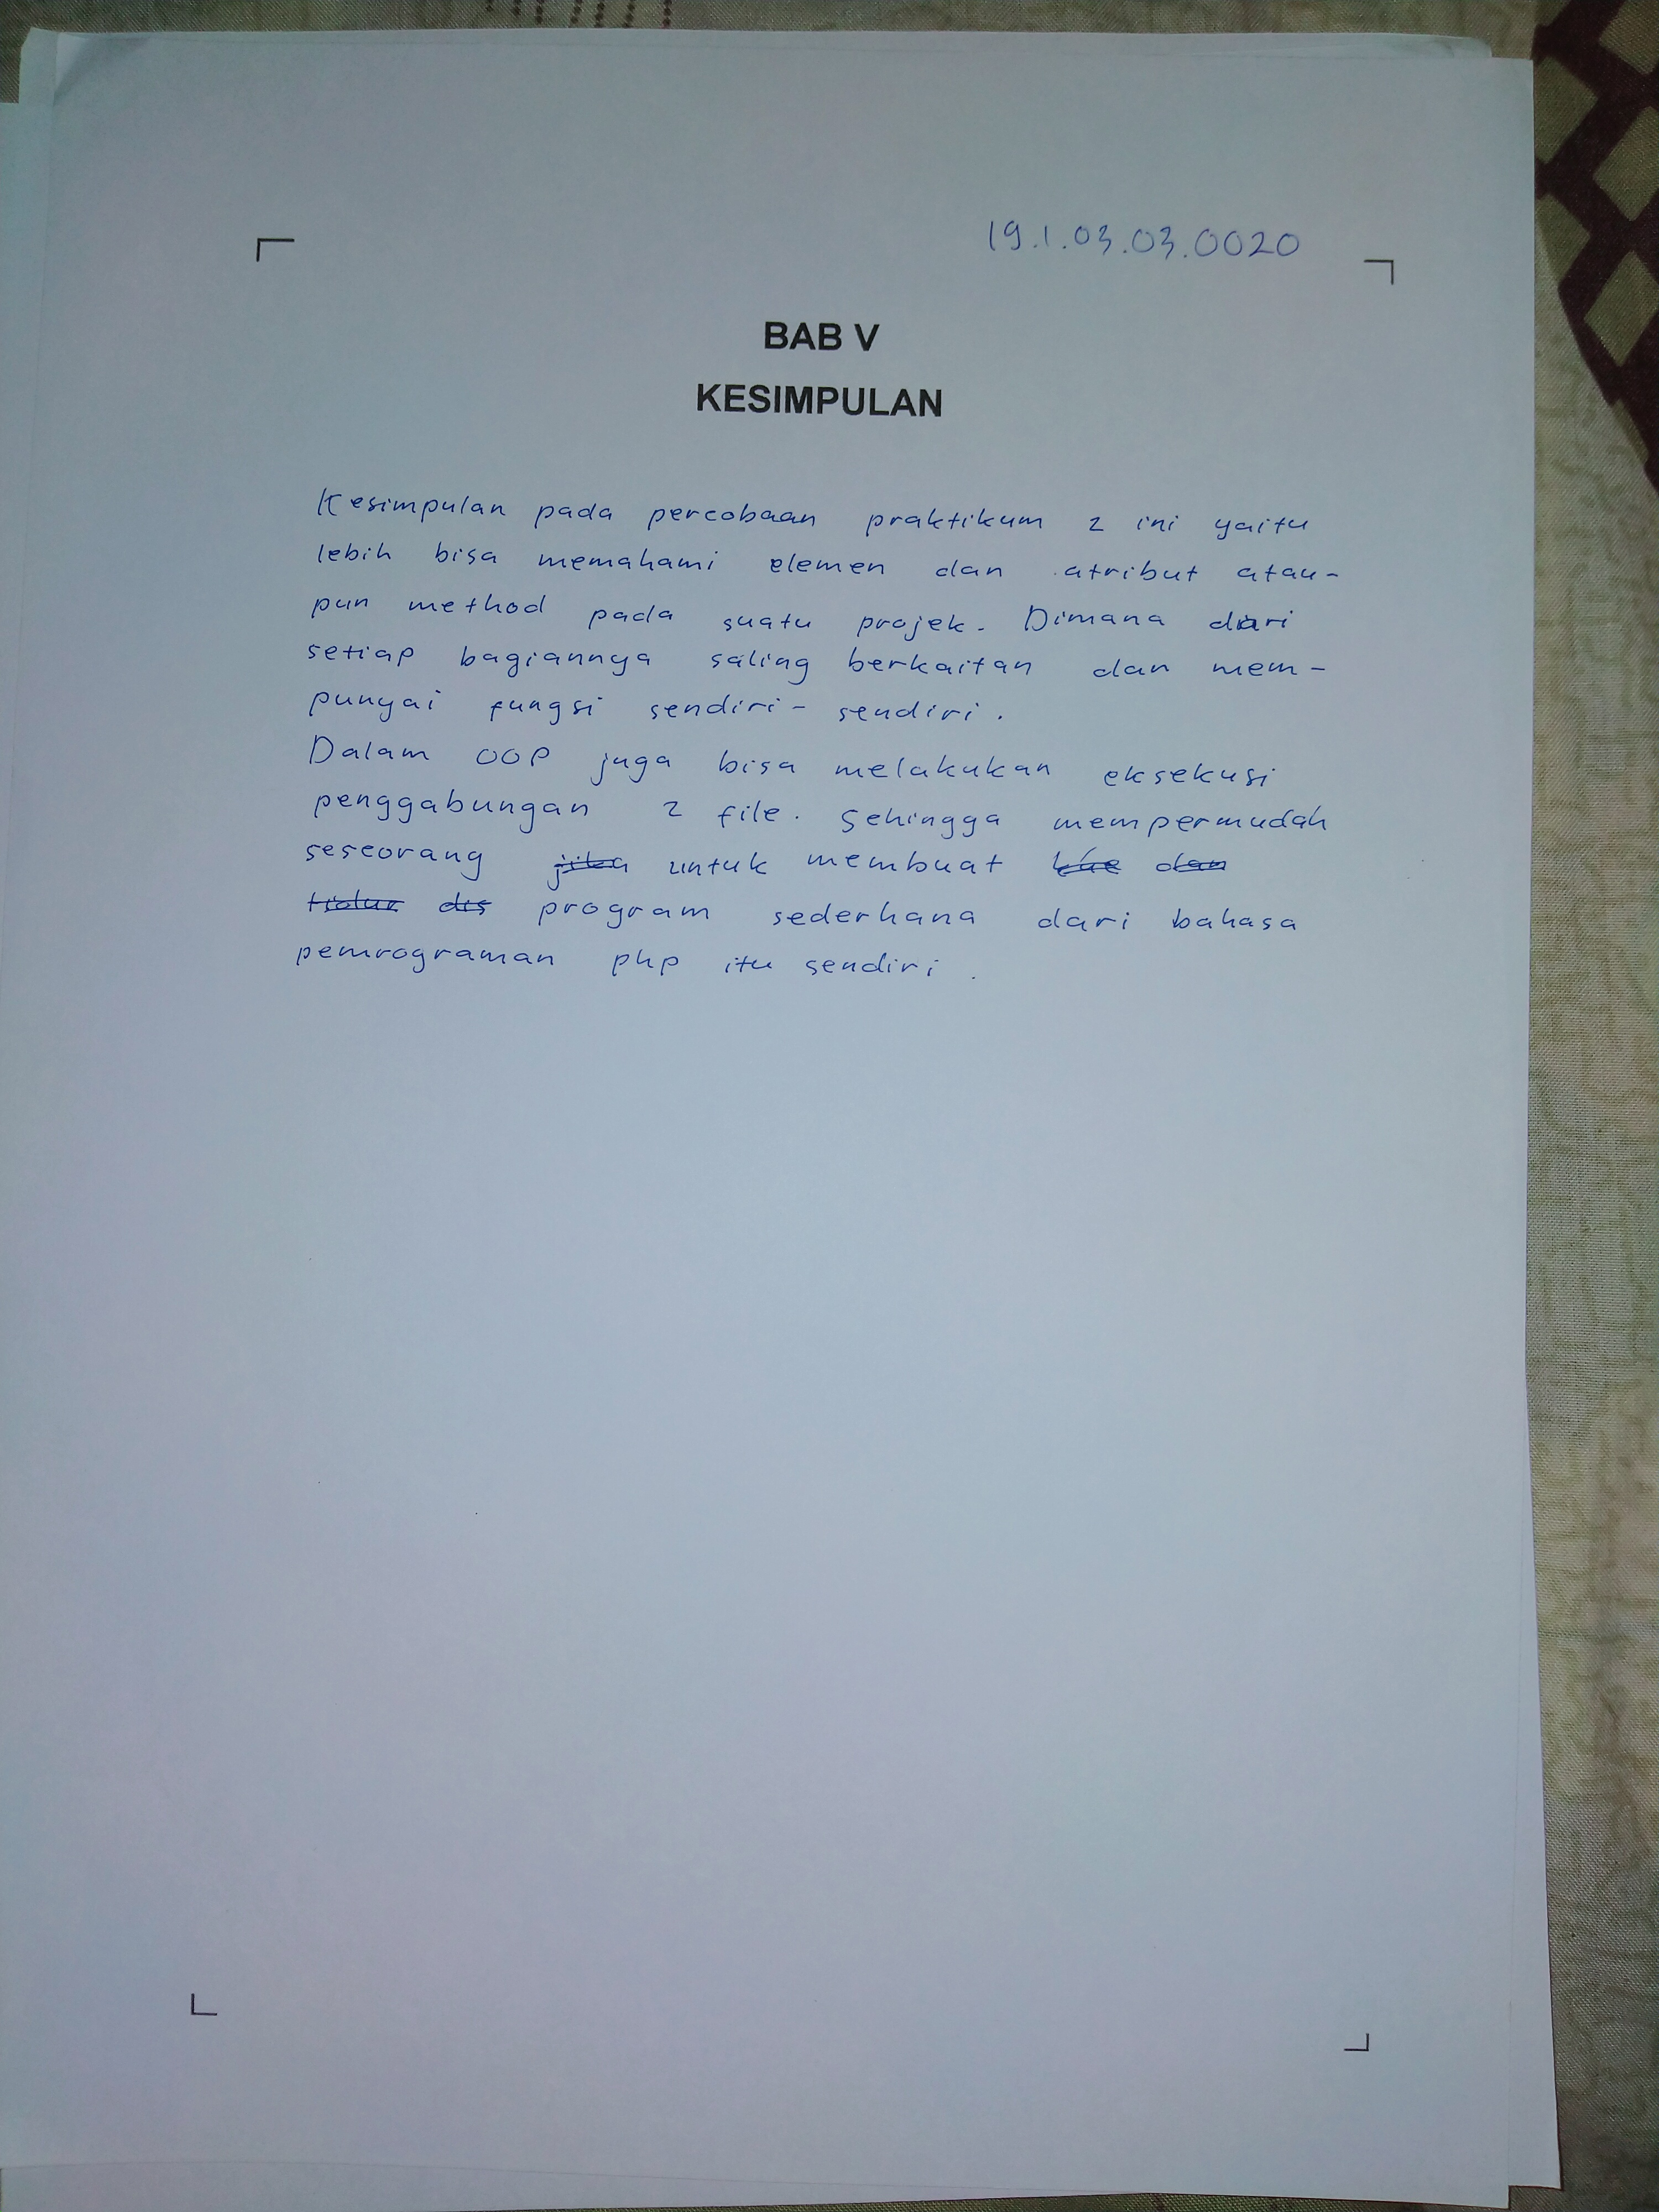 19.1.03.03.0020
BAB V
KESIMPULAN
Kesimpulan pada percobaan praktikum 2 ini yaitu
lebih bisa memahami elemen dan atribut atau-
pun method pada suatu projek. Dimana dari
setiap bagiannya saling berkaitan dan mem-
punyai fungsi sendiri-sendiri.
Dalam OOP juga bisa melakukan eksekusi
penggabungan 2 file. Sehingga mempermudah
seseorang untuk membuat
program sederhana dari bahasa
pemrograman php itu sendiri.